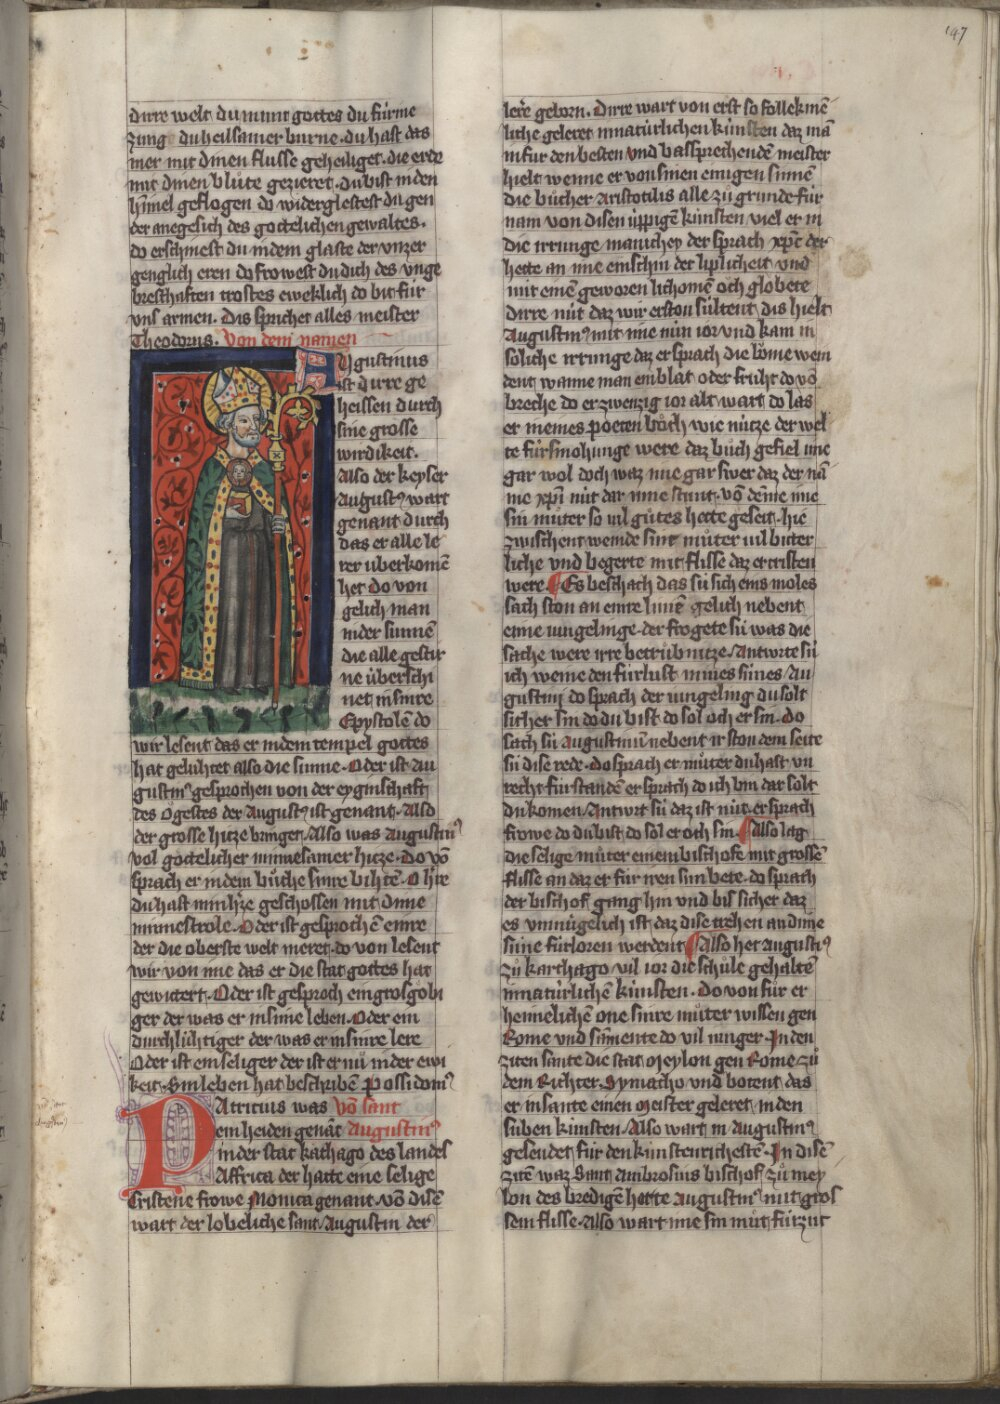 147
dirre welt du munt gottes du fúrine
zung du heilsamer burne. du hast das
mer mit dinen flusse geheiliget. die erde
mit dinen blůte gezieret. du bist in den
himel geflogen do widerglestest du gen
der anegesich des gottelichen gewaltes.
do erschinest du in dem glaste der vnzer
genglich eren do frowest du dich des vnge
breschaften trostes eweklich do bit fúr
vns armen. Dis sprichet alles meister
Theodorus. Von dem namen
Vgustinus
ist dirre ge
heissen durch
sine grosse
wirdikeit.
Also der keyser
Augustꝰ wart
genant durch
das er alle le
rer úberkomē
het do von
gelich man
in der sunnē
die alle gestir
ne úberschi
net in sinre
Epystolē do
wir lesent das er in dem tempel gottes
hat gelúhtet also die sunne. Oder ist Au
gustinꝰ gesprochen von der eyginschaft
des ǒgestes der Augustꝰ ist genant. Also
der grosse hitze bringet. Also was Augustinꝰ
vol gottelicher minnesamer hitze. Do vō
sprach er in dem bůche sinre bihtē. O h're
du hast min h'tze geschossen mit dinre
minnestrole. Oder ist gesprochē einre
der die oberste welt meret. do von lesent
wir von ime das er die stat gottes hat
gewitert. Oder ist gesproch ein grosgobi
ger der was er in sime leben. Oder ein
durchlúhtiger der was er in sinre lere
Oder ist ein seliger der ist er nů in der ewi
keit. Sin leben hat beschribē Possidomꝰ
PAtricius was vō sant
ein heiden genāt Augustinꝰ
in der stat kathago des landes
Affrica der hatte eine selige
Cristene frowe Monica genant. vō disē
wart der lobeliche sant Augustin der
lere geborn. Dirre wart von erst so follekmē
liche geleret in natúrlichen kúnsten daz mā
in fúr den besten vnd bassprechendē meister
hielt wenne er von sinen einigen sinnē
die bůcher Aristotilis alle zů grunde fúr
nam von disen úppigē kúnsten viel er in
die irrunge manichey der sprach xp̄c der
hette an ime ein schin der liplicheit vnd
nút einē geworen lichomē och globete
dirre nút daz wir erston súltent dis hielt
Augustinꝰ mit ime nún ior vnd kam in
soliche irrunge daz er sprach die bǒme wein
dent wanne man ein blat oder fruht do vō
breche do er zwenzig ior alt wart do las
er in eines poeten bůch wie nútze der wel
te fúrsmohunge were daz bůch gefiel ime
gar wol doch waz ime gar swer daz der nā
me xp̄i nút dar inne stunt. vō dēme ime
sin můter so vil gůtes hette geseit. hie
zwischent weinde sine můter vil bitter
liche vnd begerte mit flisse daz er cristen
were. Es beschach das sú sich eins moles
sach ston an einre linnē gelich nebent
eime iungelinge. der frogete sú was die
sache were irre betrůbnitze. Antwrte sú
ich weine den fúrlust mines sunes Au
gustini do sprach der iungeling du solt
sicher sin do du bist do sol och er sin. do
sach sú Augustinū nebent ir ston dem seite
sú dise rede. do sprach er můter du hast vn
recht fúrstandē er sprach do ich bin dar solt
du komen. Antwrt sú daz ist nút. er sprach
frowe do du bist do sol er och sin. Also lag
die selige můter einem bischofe mit grossē
flisse an daz er fúr iren sun bete. do sprach
der bischof gang hin vnd bis sicher daz
es vnmúgelich ist daz dise trehen an dime
sune fúrloren werdent. Also het Augustiꝰ
zů karthago vil ior die schůle gehaltē
in natúrlichē kúnsten. Do von fůr er
heimelichē one sinre můter wissen gen
Rome vnd samente do vil iunger. In den
ziten sante die stat Meylon gen Rome zů
dem Richter. Symacho vnd botent das
er in sante einen Meister geleret in den
siben kúnsten. Also wart in Augustinꝰ
gesendet fúr den kúnstenrichestē. In disē
zitē waz Sant Ambrosius bischof zů mey
lon des bredigē horte Augustinꝰ mit gros
sem flisse. Also wart ime sin můt fúrzút